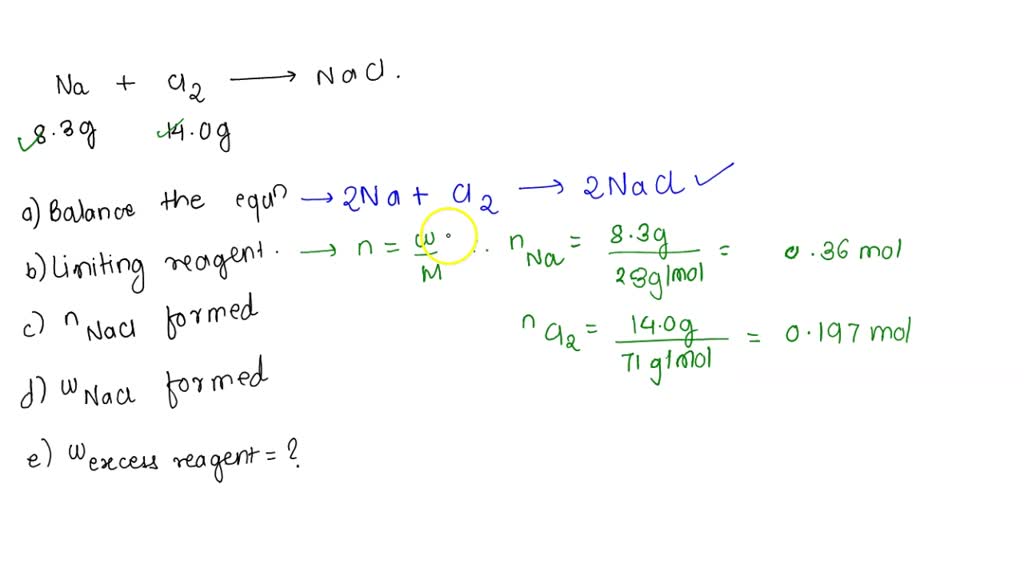 Na + Cl2 → NaCl.
✓8.3g ✓14.0g
a) Balance the equn → 2Na + Cl2 → 2NaCl ✓
b) Limiting reagent. → n = w/M ∴ nNa = 8.3g / 23g/mol = 0.36 mol
c) nNaCl formed
nCl2 = 14.0g / 71g/mol = 0.197 mol
d) wNaCl formed
e) wexcess reagent = ?